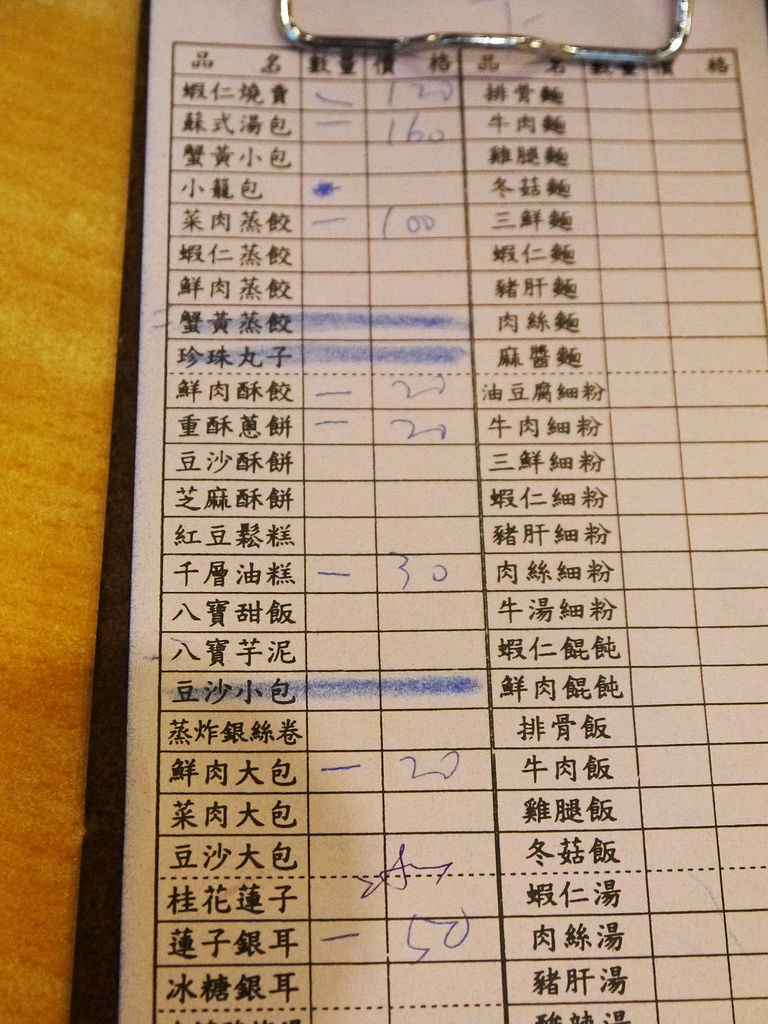 品名 數量 價格 品名 數量 價格
蝦仁燒賣 一 120 排骨麵
蘇式湯包 一 160 牛肉麵
蟹黃小包 雞腿麵
小籠包 冬菇麵
菜肉蒸餃 一 100 三鮮麵
蝦仁蒸餃 蝦仁麵
鮮肉蒸餃 豬肝麵
蟹黃蒸餃 肉絲麵
珍珠丸子 麻醬麵
鮮肉酥餃 一 20 油豆腐細粉
重酥蔥餅 一 20 牛肉細粉
豆沙酥餅 三鮮細粉
芝麻酥餅 蝦仁細粉
紅豆鬆糕 豬肝細粉
千層油糕 一 30 肉絲細粉
八寶甜飯 牛湯細粉
八寶芋泥 蝦仁餛飩
豆沙小包 鮮肉餛飩
蒸炸銀絲卷 排骨飯
鮮肉大包 一 20 牛肉飯
菜肉大包 雞腿飯
豆沙大包 冬菇飯
桂花蓮子 蝦仁湯
蓮子銀耳 一 50 肉絲湯
冰糖銀耳 豬肝湯
酸辣湯